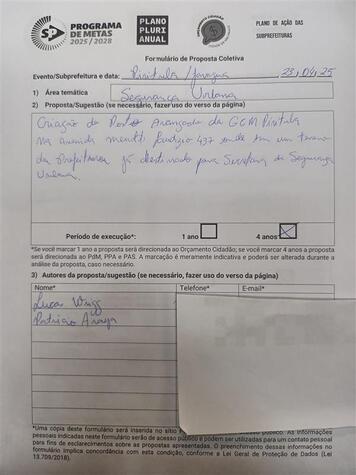 PROGRAMA
DE METAS
2025 / 2028
PLANO
PLURI
ANUAL
PLANO DE AÇÃO DAS
SUBPREFEITURAS
Formulário de Proposta Coletiva
Evento/Subprefeitura e data: Pirituba / Jaraguá 23/04/25
1) Área temática Segurança Urbana
2) Proposta/Sugestão (se necessário, fazer uso do verso da página)
Criação do Posto Avançado da GCM Pirituba
na avenida 437 onde tem um terreno
da prefeitura já destinado para Secretaria de Segurança
Urbana.
Período de execução*: 1 ano 4 anos
*Se você marcar 1 ano a proposta será direcionada ao Orçamento Cidadão; se você marcar 4 anos a proposta
será direcionada ao PdM, PPA e PAS. A marcação é meramente indicativa e poderá ser alterada durante a
análise da proposta, caso necessário.
3) Autores da proposta/sugestão (se necessário, fazer uso do verso da página)
Nome* Telefone* E-mail*
Lucas
Patricio
*Uma cópia deste formulário será inserida no sítio acesso público. As informações
pessoais indicadas neste formulário serão de acesso público e podem ser utilizadas para um contato pessoal
para fins de esclarecimentos sobre as propostas apresentadas. O preenchimento desses informações no
formulário implica concordância com esta condição, conforme a Lei Geral de Proteção de Dados (Lei
13.709/2018).